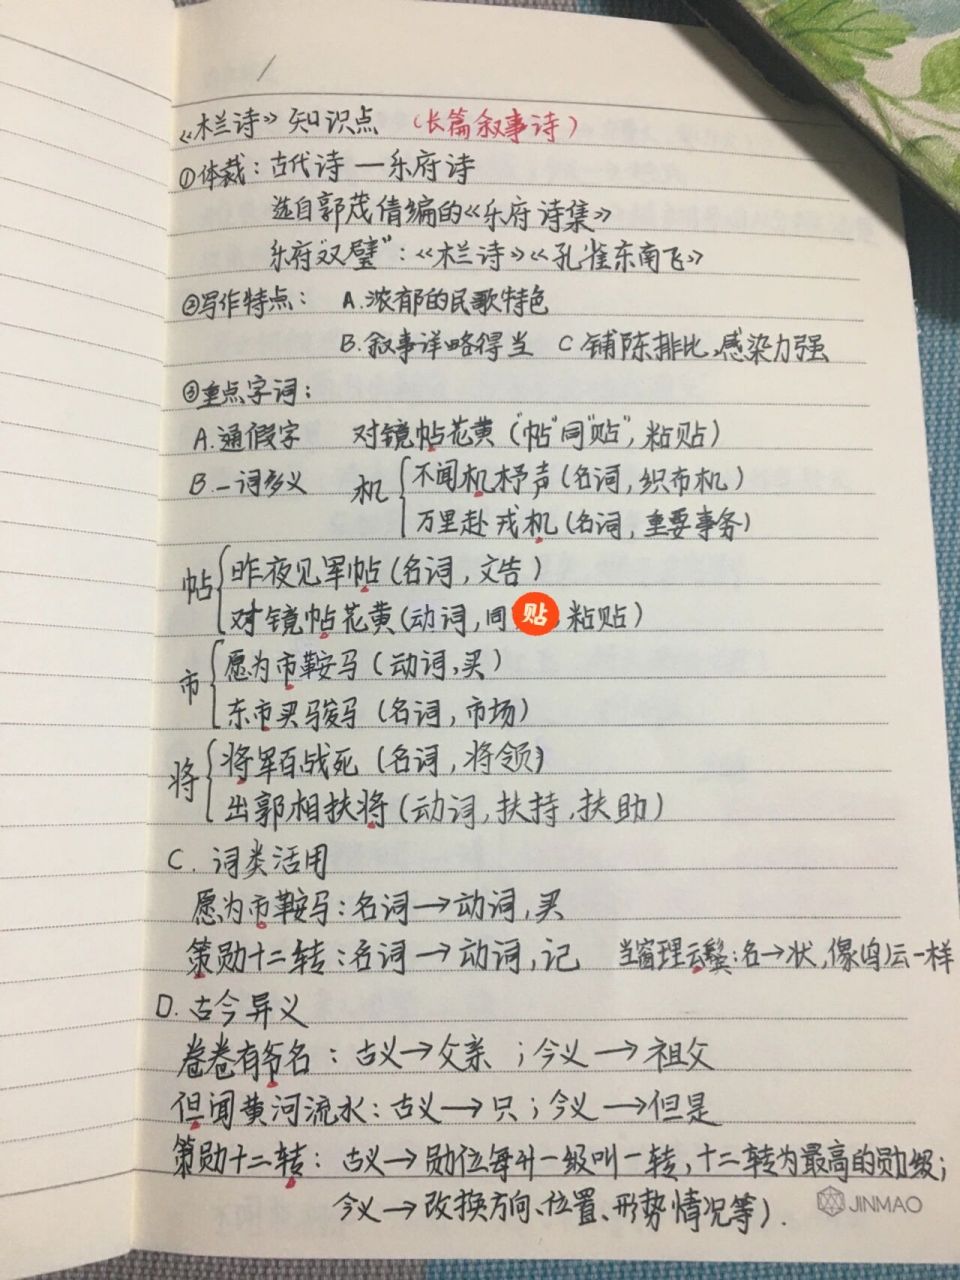 《木兰诗》知识点 (长篇叙事诗)
①体裁：古代诗 — 乐府诗
选自郭茂倩编的《乐府诗集》
乐府"双璧"：《木兰诗》《孔雀东南飞》
②写作特点： A.浓郁的民歌特色
B.叙事详略得当 C 铺陈排比,感染力强
③重点字词：
A.通假字 对镜帖花黄 ("帖"同"贴", 粘贴)
B.一词多义 机 不闻机杼声 (名词, 织布机)
万里赴戎机 (名词, 重要事务)
帖 昨夜见军帖 (名词, 文告)
对镜帖花黄 (动词, 同 贴 粘贴)
市 愿为市鞍马 (动词, 买)
东市买骏马 (名词, 市场)
将 将军百战死 (名词, 将领)
出郭相扶将 (动词, 扶持, 扶助)
C. 词类活用
愿为市鞍马：名词→动词, 买
策勋十二转：名词→动词, 记 当窗理云鬓：名→状, 像乌云一样
D. 古今异义
卷卷有爷名：古义→父亲；今义→祖父
但闻黄河流水：古义→只；今义→但是
策勋十二转：古义→勋位每升一级叫一转, 十二转为最高的勋级；
今义→改换方向、位置、形势情况等).
JINMAO